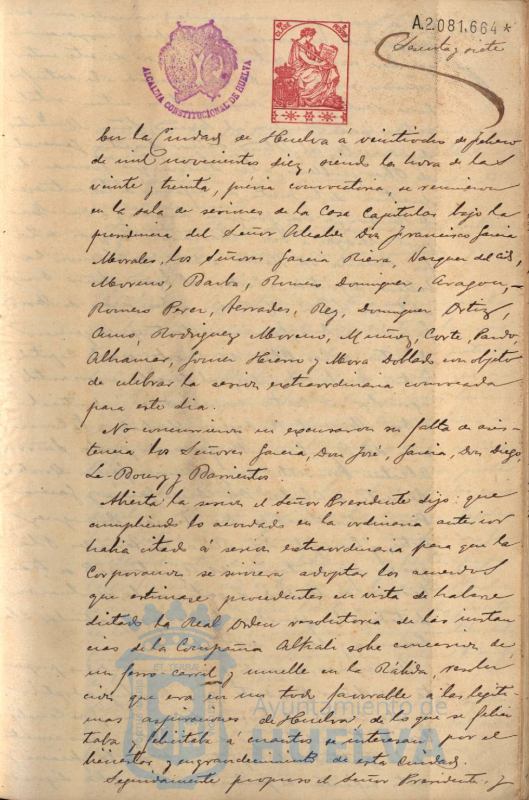 A.2.081.664 *
Sesenta y siete
ALCALDIA CONSTITUCIONAL DE HUELVA
En la Ciudad de Huelva á veintidos de febrero
de mil novecientos diez, siendo la hora de las
veinte y treinta, prévia convocatoria, se reunieron
en la sala de sesiones de la Casa Capitular bajo la
presidencia del Señor Alcalde Don Francisco García
Morales, los Señores García Riera, Vazquez del Cid,
Moreno, Barba, Romero Dominguez, Aragon,
Romero Perez, Terrades, Rey, Dominguez Ortiz,
Rodriguez Moreno, Muñoz, Corte, Pardo,
Alhamar, Hierro y Mora Doblado con objeto
de celebrar la sesion extraordinaria convocada
para este dia.
No concurrieron ni excusaron su falta de asis-
tencia los Señores García, Don José, García, Don Diego
Le-Bourg y Barrientos.
Abierta la sesion el Señor Presidente dijo: que
cumpliendo lo acordado en la ordinaria anterior
habia citado á sesion extraordinaria para que la
Corporacion se sirviera adoptar los acuerdos
que estimase procedentes en vista de haberse
dictado la Real Orden resolutoria de las instan-
cias de la Compañia Alkali sobre concesion de
un ferro-carril y muelle en la Rábida, resolu-
cion que era en un todo favorable á las legiti-
mas aspiraciones de Huelva, de lo que se felici-
taba y felicitaba á cuantos se interesan por el
bienestar y engrandecimiento de esta Ciudad.
Seguidamente propuso el Señor Presidente y
Ayuntamiento de
HUELVA